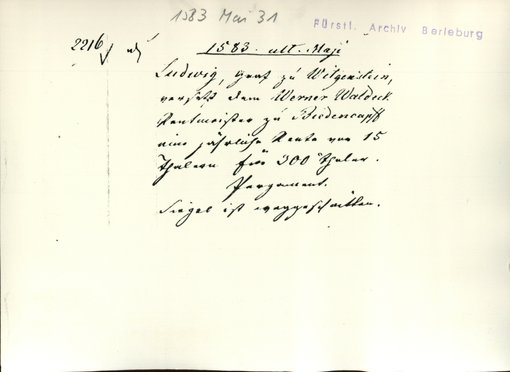 1583 Mai 31
Fürstl. Archiv Berleburg
2216
1583. ult. Maji
Ludwig, Graf zu Witgenstein,
versetzt dem Werner Waldeck
Rentmeister zu Biedencapff
eine jährliche Rente von 15
Thalern für 300 Thaler.
Pergament.
Siegel ist weggeschnitten.